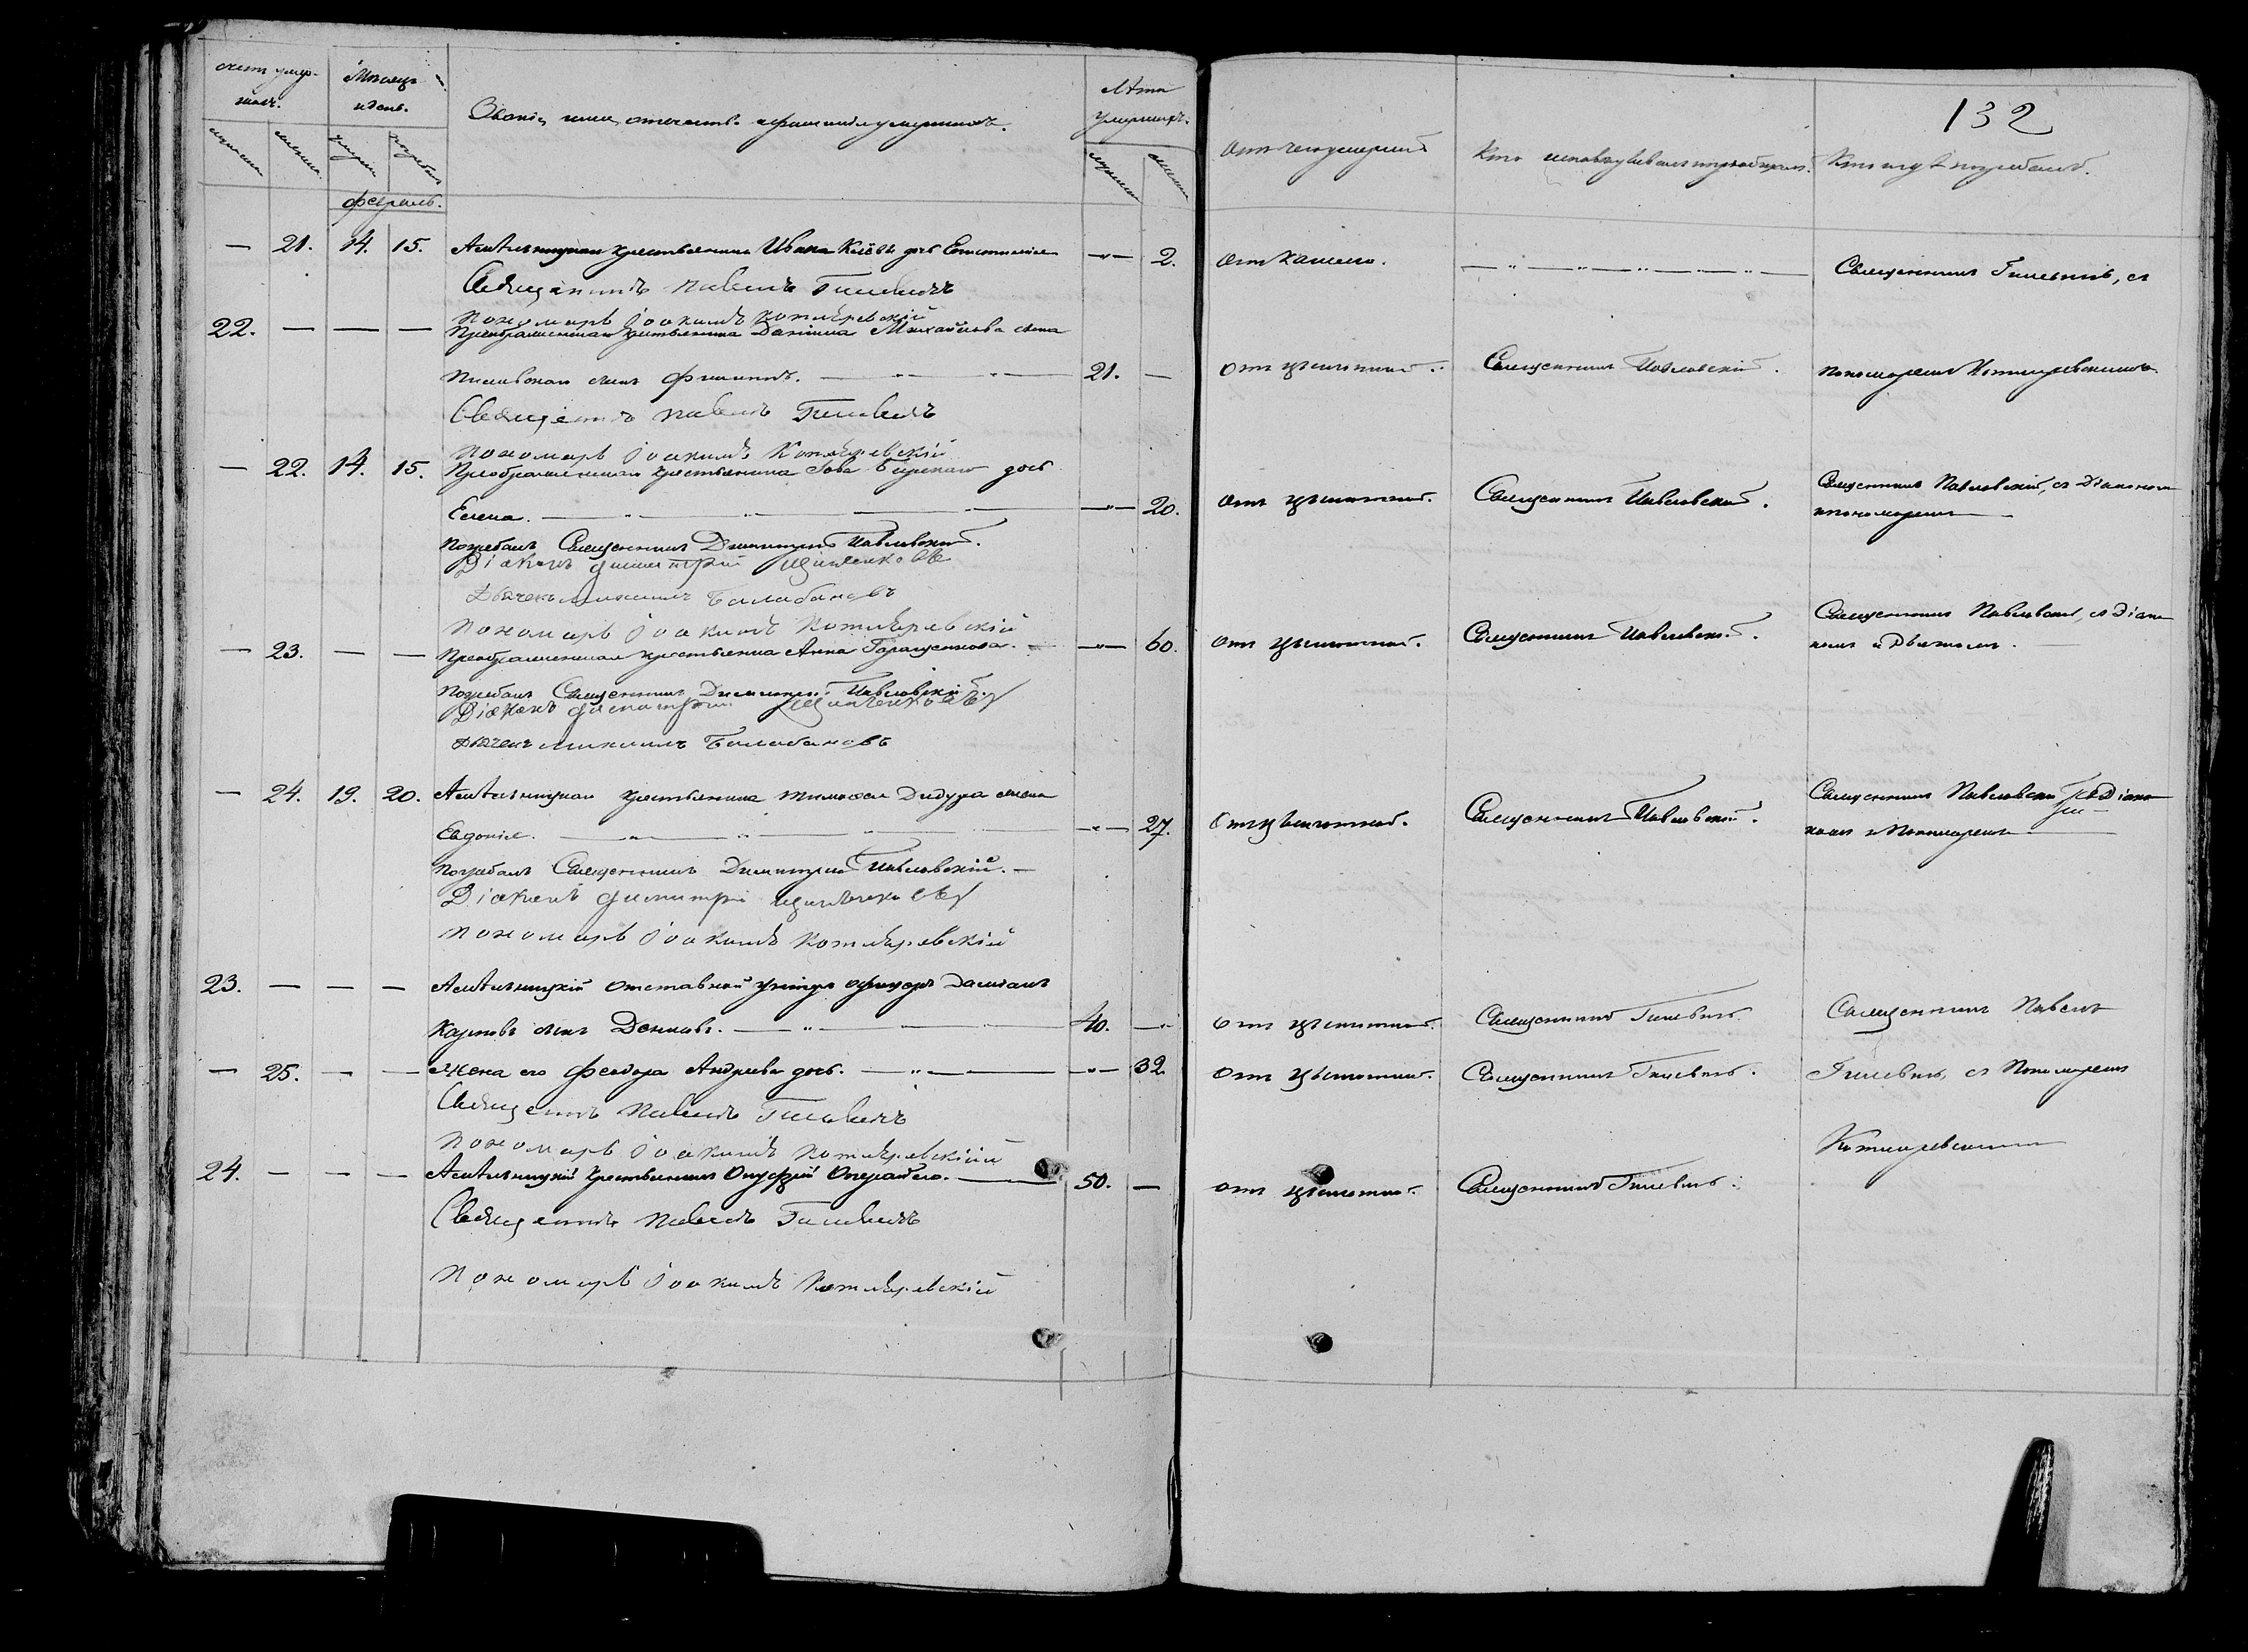 132
Счетъ умер-
шихъ.
Мѣсяцъ
и день.
Званіе, имя, отчество и фамилія умершихъ.
Лѣта
умершихъ.
Отъ чего умеръ
Кто исповѣдывалъ и пріобщалъ.
Кто и гдѣ погребалъ.
Февраль.
— 21. 14. 15. крестьянина Ивана дочь — 2. Отъ кашлю. Священникъ Гилевичъ, съ
Священникъ Павелъ Гилевичъ
Пономарь Іоакимъ Котляревскій
22. — — — Преображенскаго крестьянина Даніила Михайлова
сынъ Филиппъ. 21. — Отъ цынготной. Священникъ Павловскій. пономаремъ Котляревскимъ
Священникъ Павелъ Гилевичъ
Пономарь Іоакимъ Котляревскій
— 22. 14. 15. Преображенскаго крестьянина Іова дочь
Елена. — 20. Отъ цынготной. Священникъ Павловскій. Священникъ Павловскій, съ Діакономъ
и пономаремъ
Погребалъ Священникъ Димитрій Павловскій.
Діаконъ Димитрій
Дьячекъ Михаилъ Балабановъ
Пономарь Іоакимъ Котляревскій
— 23. — — Преображенская крестьянка Анна Геращенкова. — 60. Отъ цынготной. Священникъ Павловскій. Священникъ Павловскій, съ Діако-
номъ и Дьячкомъ.
Погребалъ Священникъ Димитрій Павловскій.
Діаконъ Димитрій
Дьячекъ Михаилъ Балабановъ
— 24. 19. 20. крестьянина Тимофея Дидура жена
Евдокія. — 27. Отъ цынготной. Священникъ Павловскій. Священникъ Павловскій съ Діако-
номъ и Пономаремъ
Погребалъ Священникъ Димитрій Павловскій.
Діаконъ Димитрій
Пономарь Іоакимъ Котляревскій
23. — — — отставной унтеръ офицеръ Даміанъ
Карповъ сынъ 40. — Отъ цынготной. Священникъ Гилевичъ Священникъ Павелъ
— 25. — — Жена его Феодора Андреева дочь. — 32. Отъ цынготной. Священникъ Гилевичъ. Гилевичъ, съ Пономаремъ
Священникъ Павелъ Гилевичъ
Пономарь Іоакимъ Котляревскій
Котляревскимъ
24. — — — крестьянинъ Онуфрій 50. — Отъ цынготной. Священникъ Гилевичъ.
Священникъ Павелъ Гилевичъ
Пономарь Іоакимъ Котляревскій